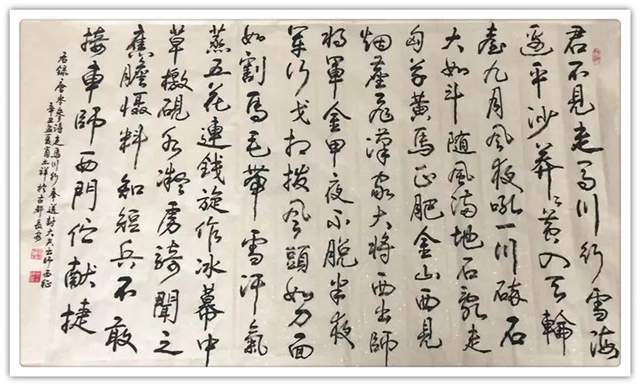 君不見走馬川行雪海
邊平沙莽莽黃入天輪
臺九月風夜吼一川碎石
大如斗随風滿地石亂走
匈奴草黃馬正肥金山西見
烟塵飛漢家大將西出師
將軍金甲夜不脫半夜
軍行戈相撥風頭如刀面
如割馬毛帶雪汗氣
蒸五花連錢旋作冰幕中
草檄硯水凝虜騎聞之
應膽慑料知短兵不敢
接車師西門伫獻捷
右錄唐岑參詩走馬川行奉送封大夫出師西征
辛丑孟夏 祥於古都長安